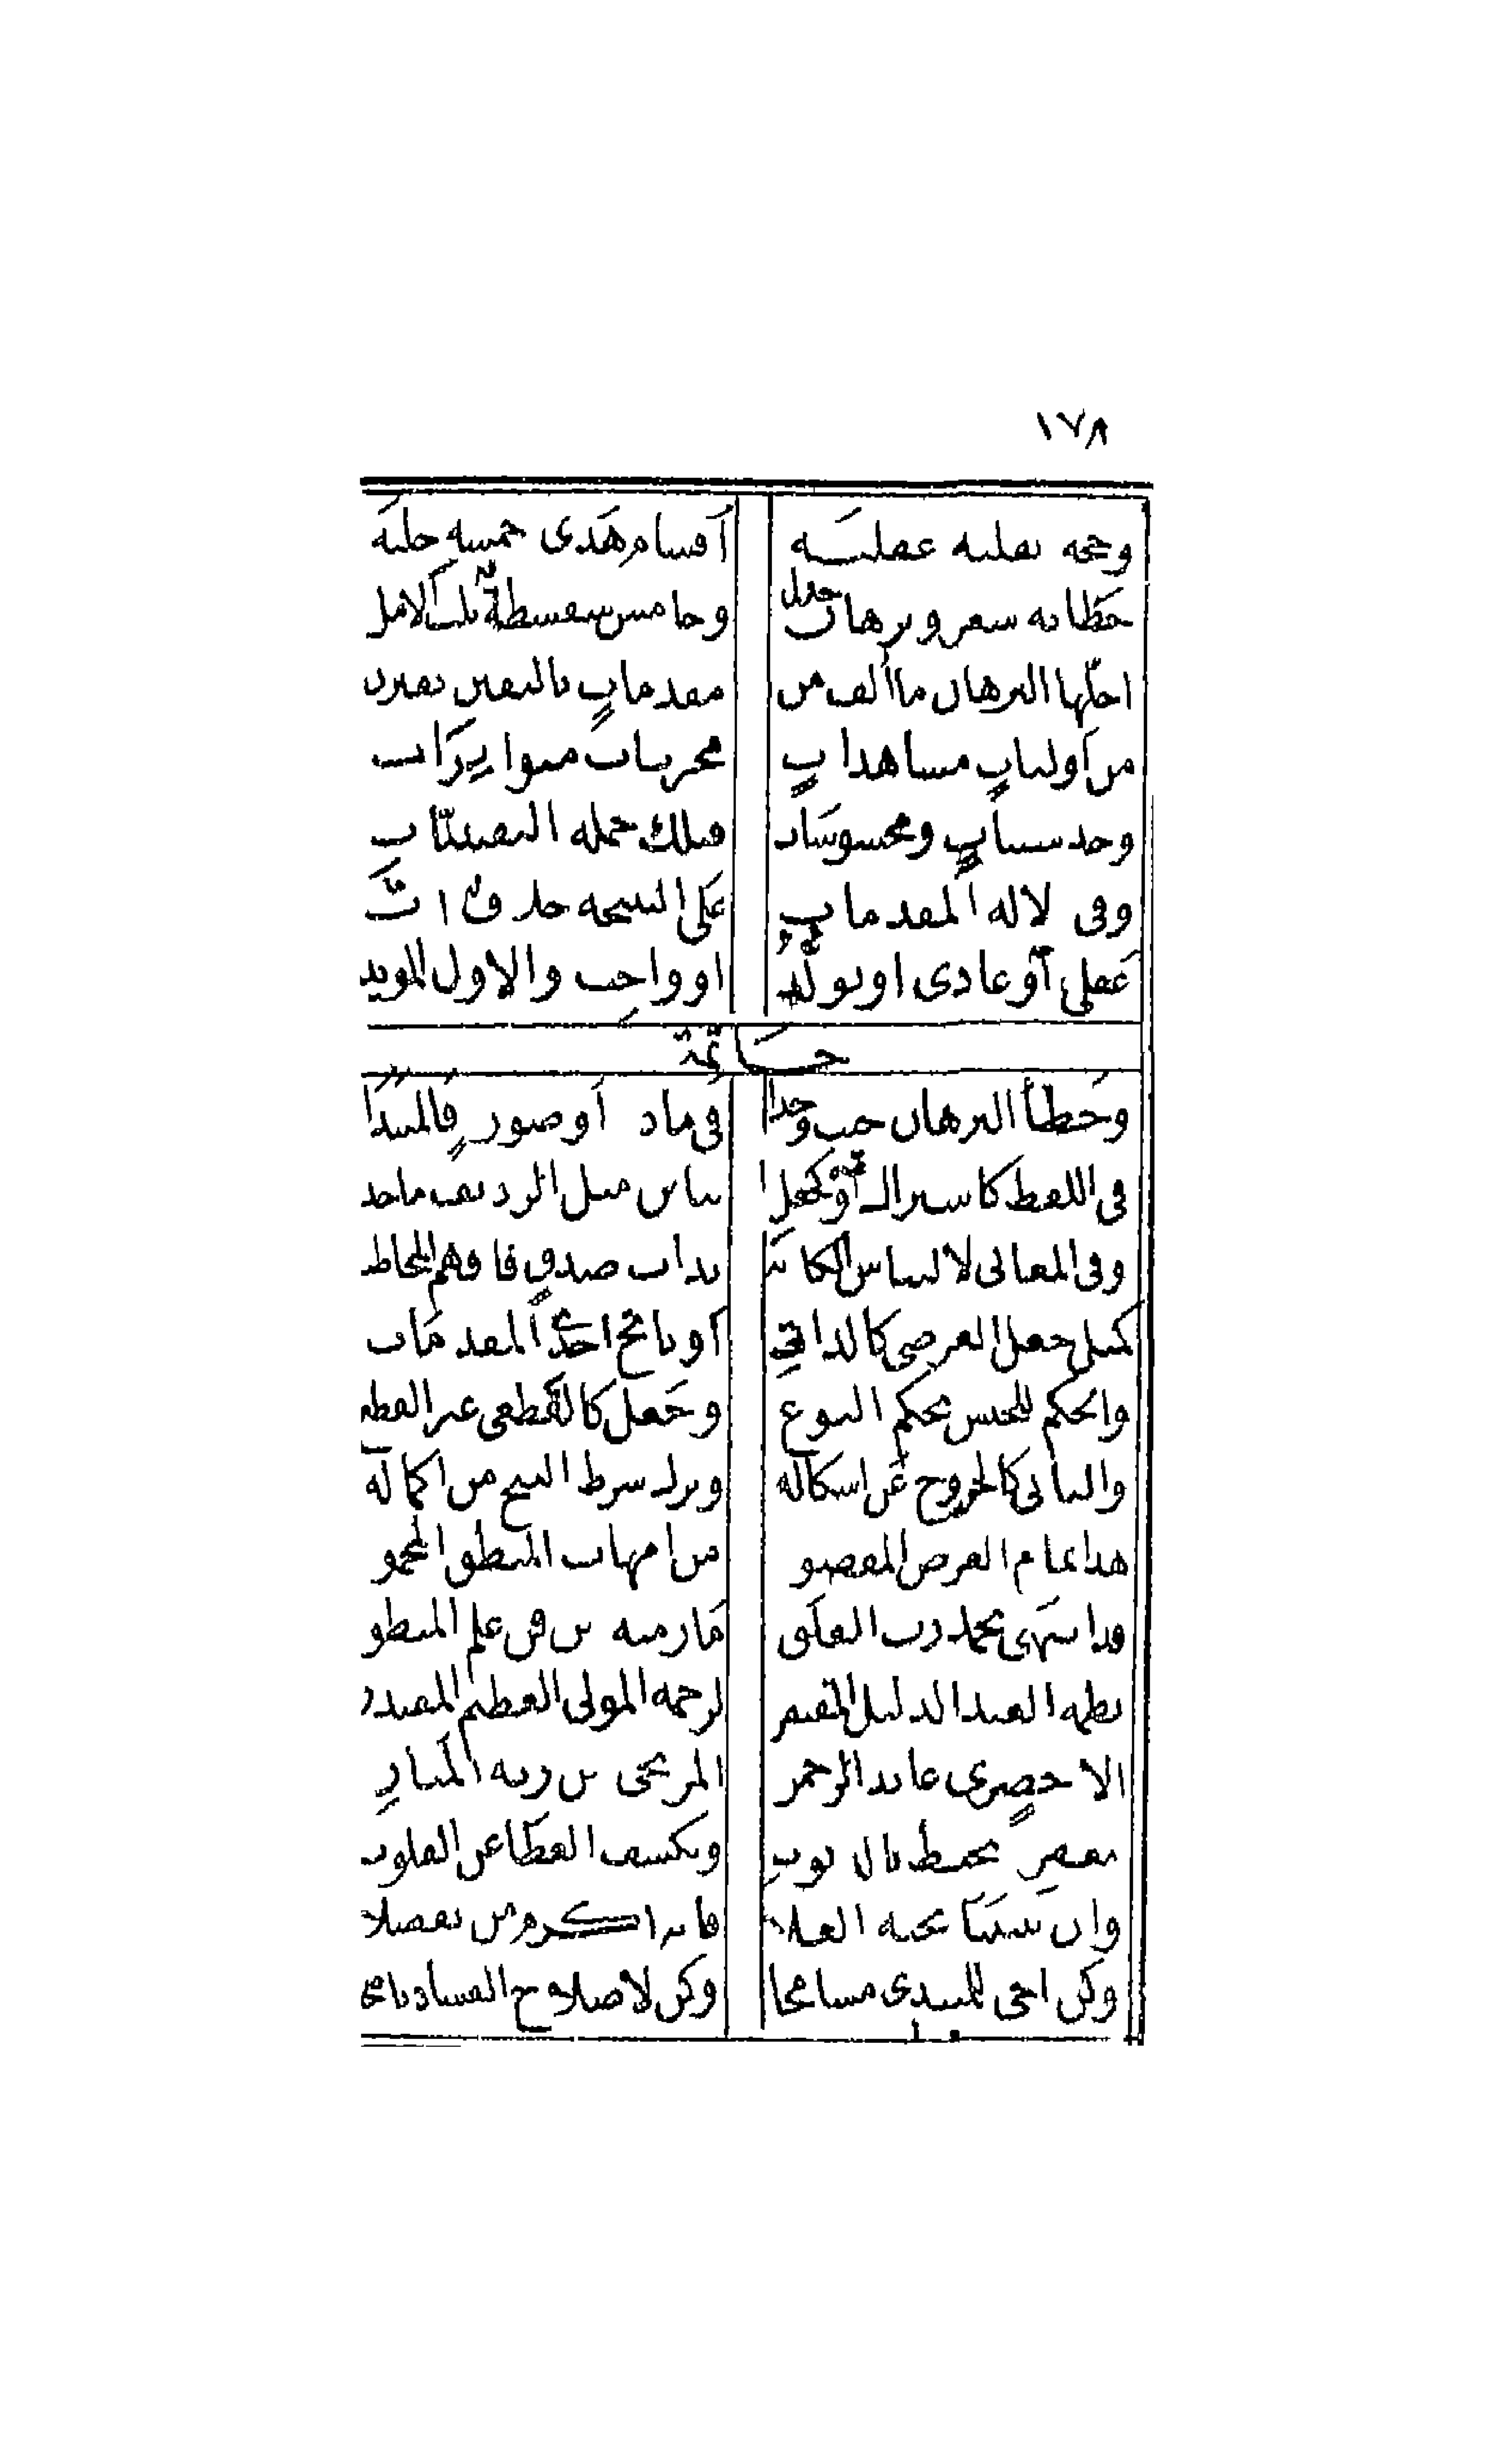 ١٧٨
وحجة نقلية عقليه أقسام هذى خمسة جليه
خطابة شعر وبرهان جدل وخامس سفسطة نلت الأمل
اجلّها البرهان ما ألف من مقدمات باليقين تقترن
من أوليات مشاهدات مجربات متواترات
وحدسيات ومحسوسات فتلك جملة اليقينيات
وفى دلالة المقدمات على النتيجة خلاف ات
عقلى أو عادى او تولد او واجب والاول المويد
خاتمة
وخطأ البرهان حيث وجدا فى ماد أو صور فالمبتدا
فى اللفظ كاشتراك أو كجعل ذا تباين مثل الرديف ماخذ
وفى المعانى لالتباس الكاذبه بذات صدق فافهم المخاطبه
كمثل جعل العرضى كالذاتى أو ناتج احدى المقدمات
والحكم للجنس بحكم النوع وجعل كالقطعى غير القطعى
والثانى كالخروج عن اشكاله وترك شرط النتج من اكماله
هذا تمام الغرض المقصود من امهات المنطق المحمود
قد انتهى بحمد رب الفلق ما رمته من فن علم المنطق
نظمه العبد الذليل المفتقر لرحمة المولى العظيم المقتدر
الاخضرى عابد الرحمن المرتجى من ربه المنان
مغفرة تحيط بالذنوب وتكشف الغطا عن القلوب
وان يثيبنا بجنة العلا فانه اكرم من تفضلا
وكن اخى للمبتدى مسامحا وكن لاصلاح الفساد ناصحا